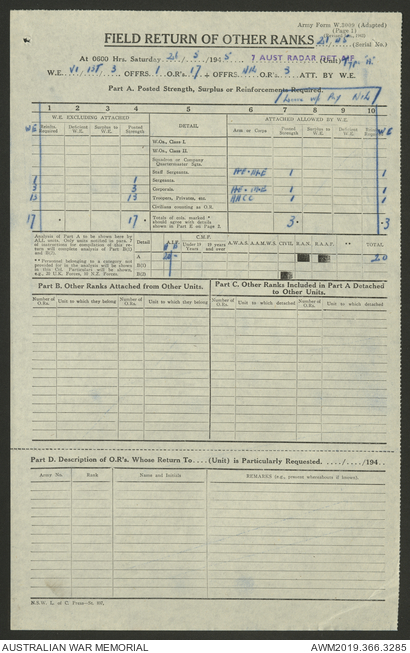 Army Form W.3009 (Adapted)
(Page 1)
FIELD RETURN OF OTHER RANKS
(Serial No.)
At 0600 Hrs. Saturday 21 / 5 / 1945 7 AUST RADAR DET (Unit)
W.E. OFFRS. 1 O.R's. 17 + OFFRS. O.R's. 3 ATT. BY W.E.
Part A. Posted Strength, Surplus or Reinforcements Required.
1 2 3 4 5 6 7 8 9 10
W.E. EXCLUDING ATTACHED DETAIL ATTACHED ALLOWED BY W.E.
W.E. Reinfts. Required Deficient W.E. Surplus to W.E. Posted Strength Arm or Corps Posted Strength Surplus to W.E. W.E.
W.Os., Class I.
W.Os., Class II.
Squadron or Company Quartermaster Sgts.
Staff Sergeants. 1
1 1 Sergeants.
3 3 Corporals. 1
13 13 Troopers, Privates, etc. AACC 1 1
Civilians counting as O.R.
17 17 Totals of cols. marked * should agree with details shown in Part E on Page 2. 3 3
Analysis of Part A to be shown here by ALL units. Only units notified in para. 7 instructions for compilation of this return will complete analysis of Part B(i) and B(ii).
Detail A.I.F. C.M.F. Under 19 Years 19 years and over A.W.A.S. A.A.M.W.S. CIVIL. R.A.N. R.A.A.F. ** TOTAL
A 20 20
B(i)
B(ii)
**Personnel belonging to a category not provided for in the analysis will be shown in this Col. Particulars will be shown, e.g., 10 U.K. Forces, 10 N.Z. Forces.
Part B. Other Ranks Attached from Other Units.
Part C. Other Ranks Included in Part A Detached to Other Units.
Number of O.Rs. Unit to which they belong Number of O.Rs. Unit to which they belong Number of O.Rs. Unit to which detached Number of O.Rs. Unit to which detached
Part D. Description of O.R's. Whose Return To.... (Unit) is Particularly Requested. ..../..../194..
Army No. Rank Name and Initials REMARKS (e.g., present whereabouts if known).
AUSTRALIAN WAR MEMORIAL
AWM2019.366.3285